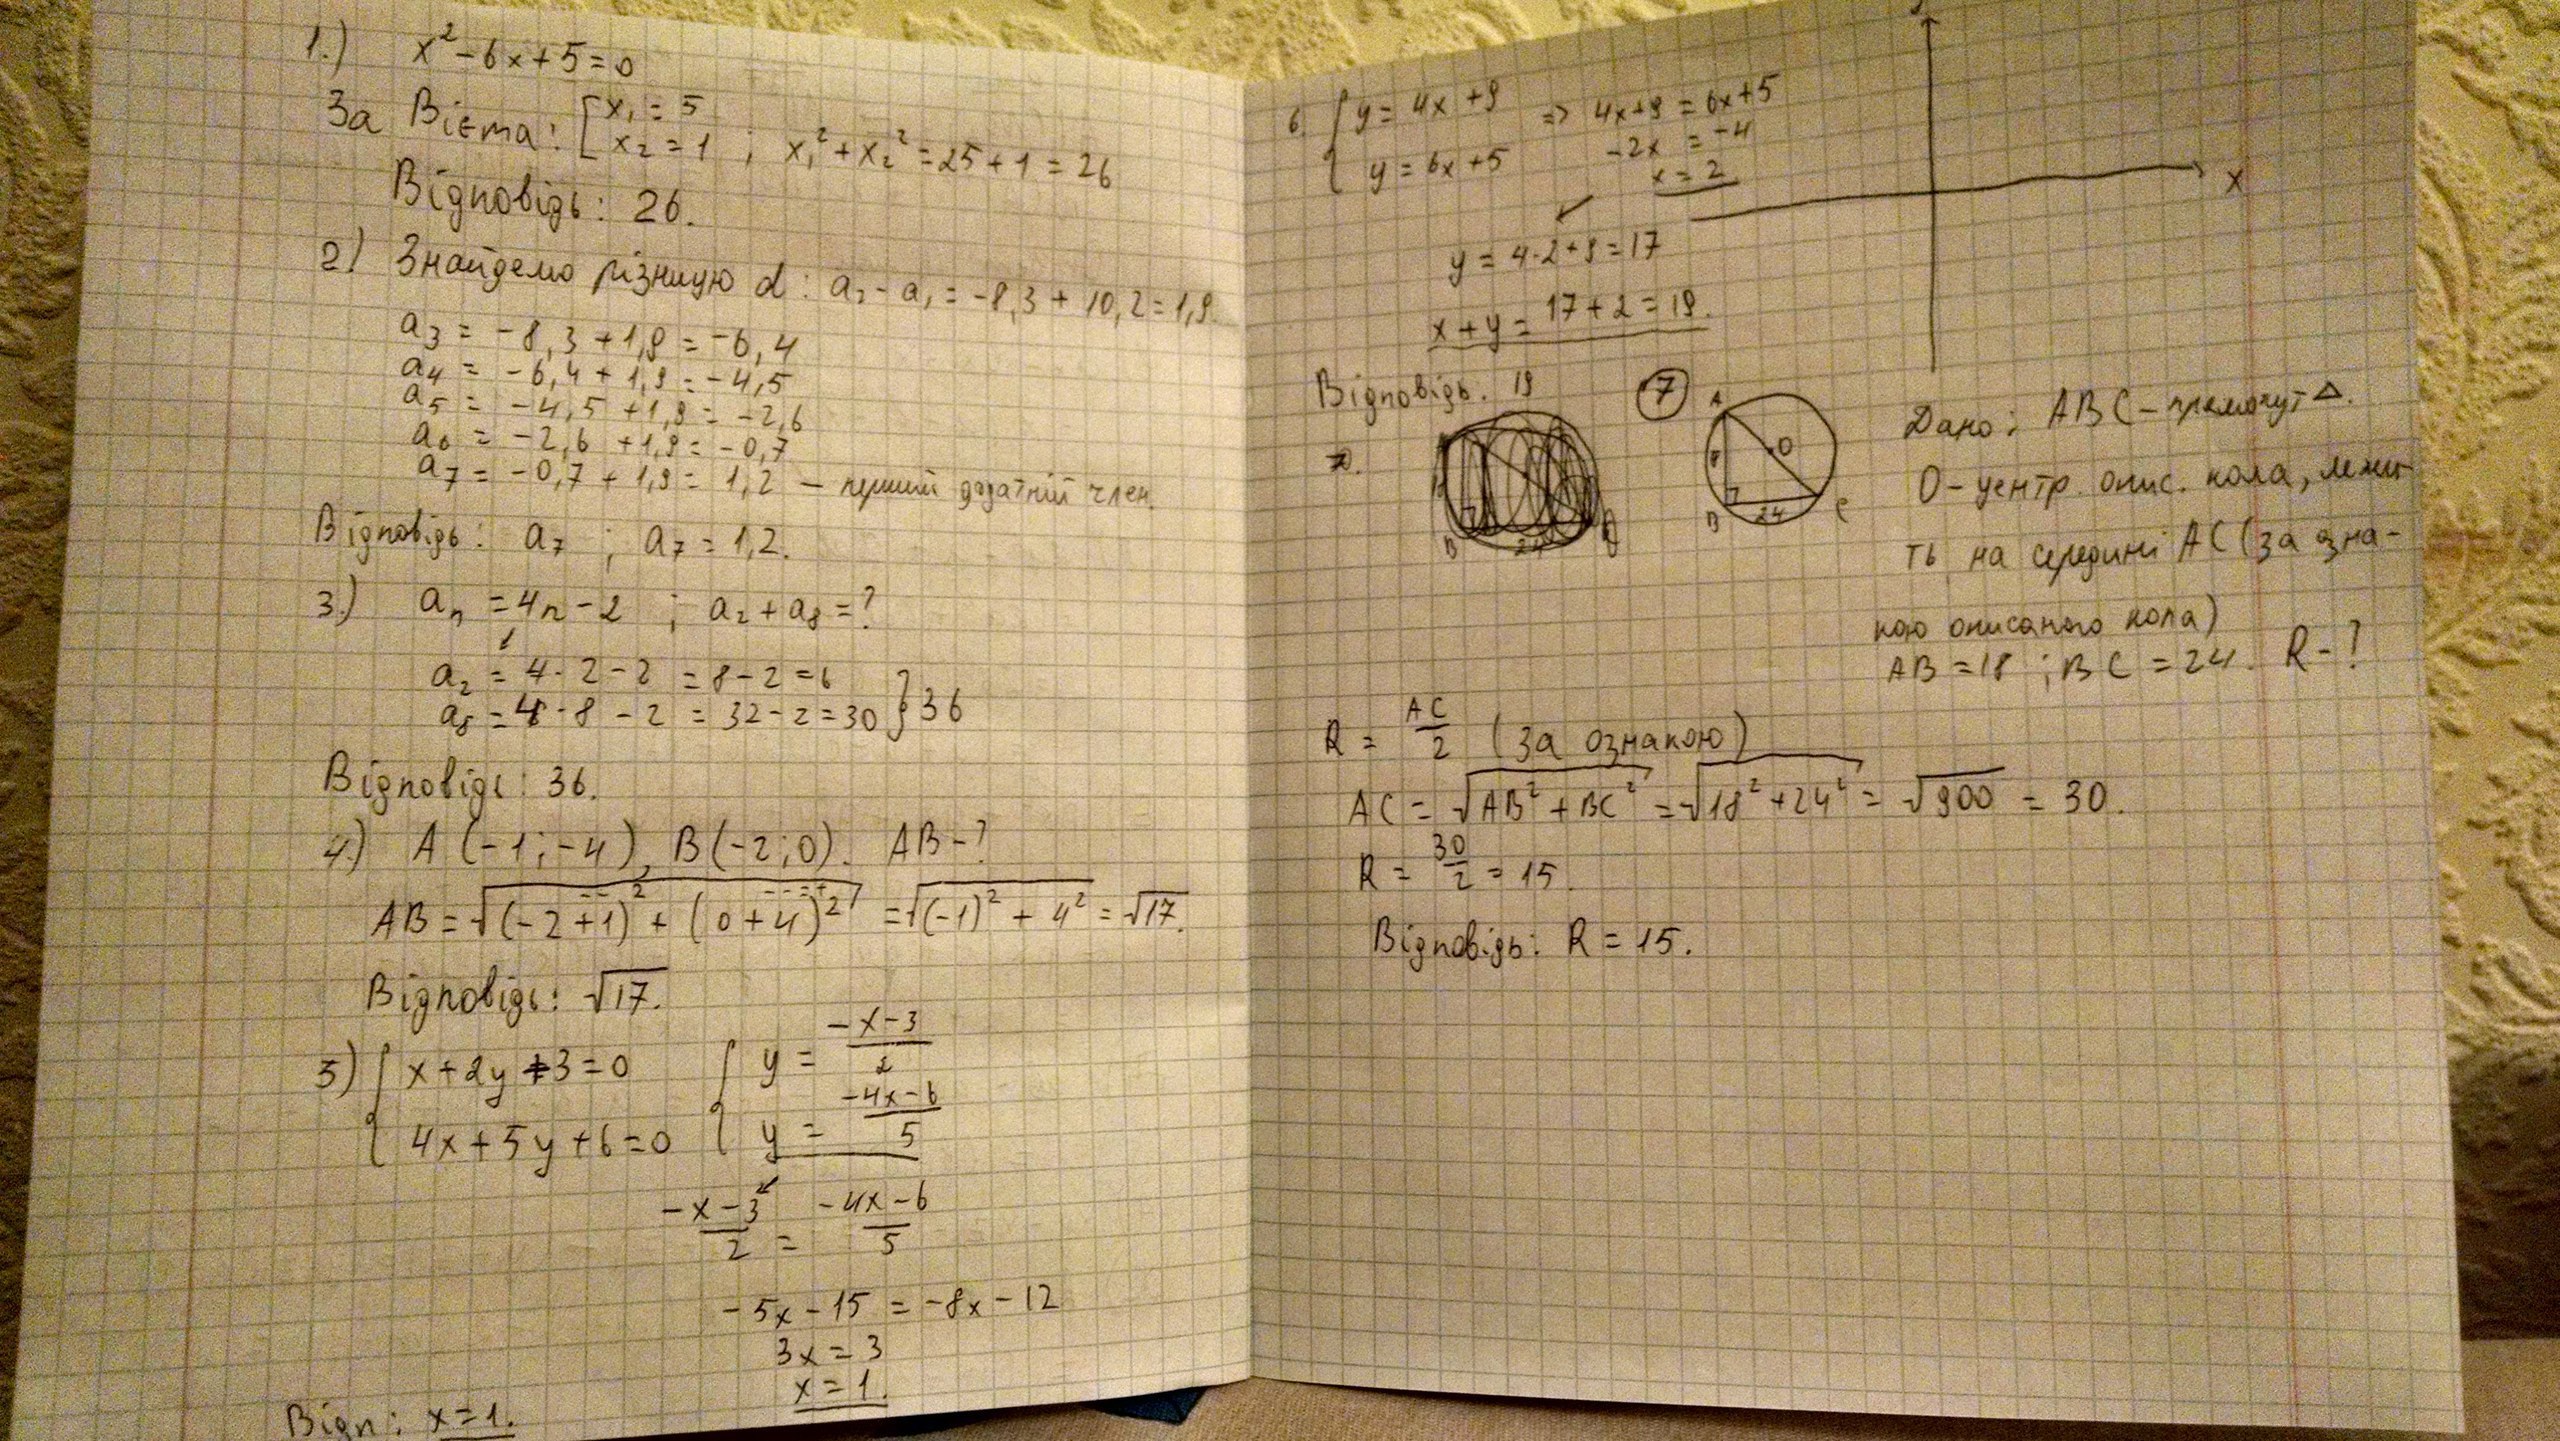 1.) x² - 6x + 5 = 0
За Вієта: [ x₁ = 5
x₂ = 1 ; x₁² + x₂² = 25 + 1 = 26
Відповідь: 26.
2) Знайдемо різницю d : a₂ - a₁ = -8,3 + 10,2 = 1,9.
a₃ = -8,3 + 1,9 = -6,4
a₄ = -6,4 + 1,9 = -4,5
a₅ = -4,5 + 1,9 = -2,6
a₆ = -2,6 + 1,9 = -0,7
a₇ = -0,7 + 1,9 = 1,2 – перший додатній член.
Відповідь: a₇ ; a₇ = 1,2.
3.) aₙ = 4n - 2 ; a₂ + a₈ = ?
a₂ = 4 · 2 - 2 = 8 - 2 = 6
a₈ = 4 · 8 - 2 = 32 - 2 = 30 } 36
Відповідь: 36.
4.) A (-1; -4), B (-2; 0). AB - ?
AB = √((-2 + 1)² + (0 + 4)²) = √((-1)² + 4²) = √17.
Відповідь: √17.
5) { x + 2y + 3 = 0 { y = (-x - 3)/2
4x + 5y + 6 = 0 y = (-4x - 6)/5
(-x - 3)/2 = (-4x - 6)/5
-5x - 15 = -8x - 12
3x = 3
x = 1.
Відп: x = 1.
6. { y = 4x + 9 => 4x + 9 = 6x + 5
y = 6x + 5 -2x = -4
x = 2
y = 4 · 2 + 9 = 17
x + y = 17 + 2 = 19.
Відповідь. 19
x
7.
B 24
7
A
O
B 24 C
Дано: ABC – прямокут △.
O – центр. опис. кола, лежи-
ть на середині AC (за озна-
кою описаного кола)
AB = 18 ; BC = 24. R - ?
R = AC/2 (за ознакою)
AC = √(AB² + BC²) = √(18² + 24²) = √900 = 30.
R = 30/2 = 15.
Відповідь: R = 15.